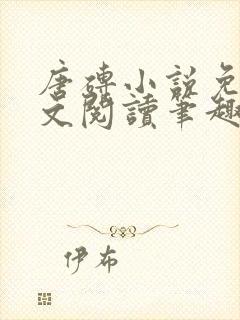 唐磚小說免
文閱讀筆趣
伊布